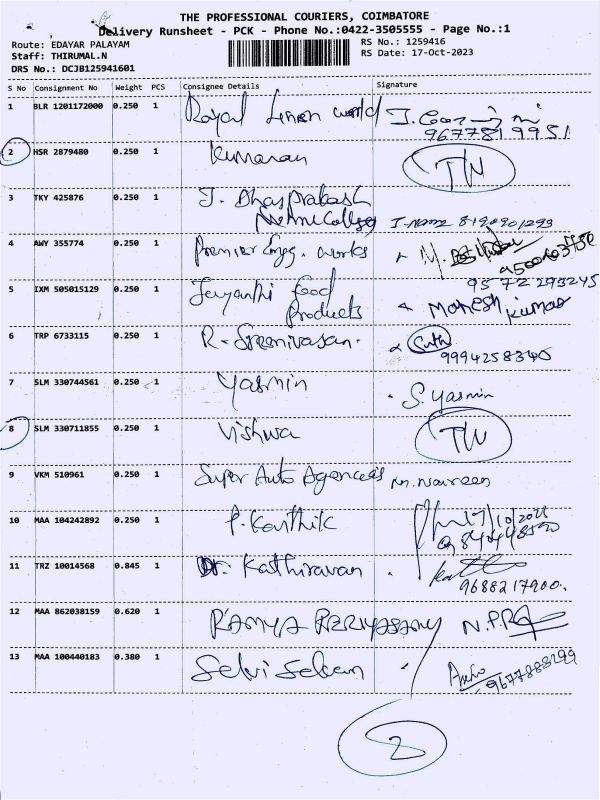 THE PROFESSIONAL COURIERS, COIMBATORE
Delivery Runsheet - PCK - Phone No.:0422-3505555 - Page No.:1
Route: EDAYAR PALAYAM
Staff: THIRUMAL.N
DRS No.: DCJB125941601
RS No.: 1259416
RS Date: 17-Oct-2023
S No Consignment No Weight PCS Consignee Details Signature
1 BLR 1201172000 0.250 1 Royal Linen World
9677819951
2 HSR 2879480 0.250 1 Kumaran TN
3 TKY 425876 0.250 1 J. Dhasprakash
College 8190901293
4 AWY 355774 0.250 1 Premier Engg. Works M.
5 IXM 505015129 0.250 1 Jayanthi Food
Products
9572293245
Mahesh Kumar
6 TRP 6733115 0.250 1 R. Sreenivasan.
9994258340
7 SLM 330744561 0.250 1 Yasmin S. Yasmin
8 SLM 330711855 0.250 1 Vishwa TN
9 VKM 510961 0.250 1 Super Auto Agencies M. Nasreen
10 MAA 104242892 0.250 1 P. Karthik 17/10/2023
11 TRZ 10014568 0.845 1 Dr. Kathiravan
9688217900.
12 MAA 862038159 0.620 1 RAMYA PERIYASAMY N.P.R
13 MAA 100440183 0.380 1 Selvi Selvan
9677888299
2